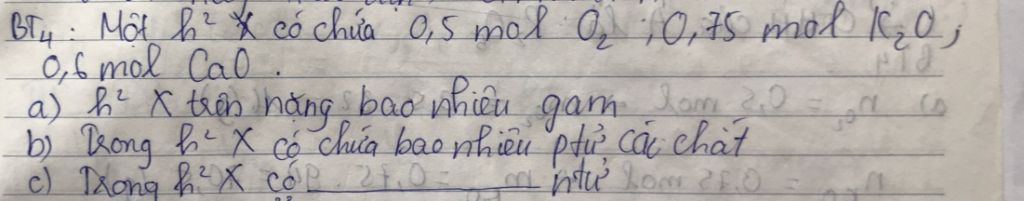 BT4: Một h² X có chứa 0,5 mol O₂; 0,75 mol K₂O;
0,6 mol CaO.
a) h² X trên nặng bao nhiêu gam
b) Trong h² X có chứa bao nhiêu ptử các chất
c) Trong h² X có ntử